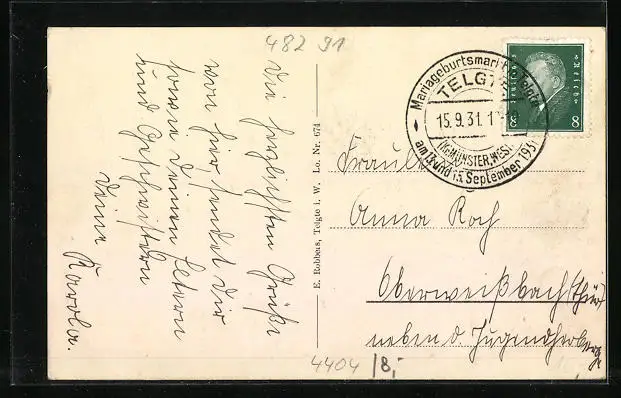 482 91
Die herzlichsten Grüße
von hier, sendet Dir
sowie Deinen Eltern
und Geschwistern
Deine
Karola.
E. Robbers, Telgte i. W., Lo. Nr. 674
Mariageburtsmarkt Telgte
TELGTE
15.9.31.1
(KR. MÜNSTER, WESTF.)
am und 15. September 1931
Deutsches Reich
8 8
Fräulein
Anna Koch
Oberweißbach (Thür
neben d. Jugendherberge
4404 /8,-